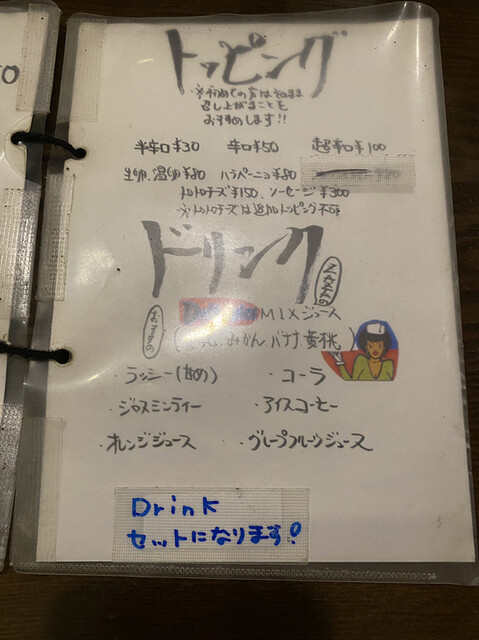 TO
トッピング
※初めての方はそのまま
召し上がることを
おすすめします!!
半辛口¥30 辛口¥50 超辛口¥100
生卵、温卵¥80 ハラペーニョ¥80
トロトロチーズ¥150、ソーセージ¥300
※トロトロチーズは追加トッピング不可
ドリンク
おすすめ
MIXジュース
みかん、バナナ、黄桃)
・ラッシー(甘め) ・コーラ
・ジャスミンティー ・アイスコーヒー
・オレンジジュース ・グレープフルーツジュース
Drink
セットになります!